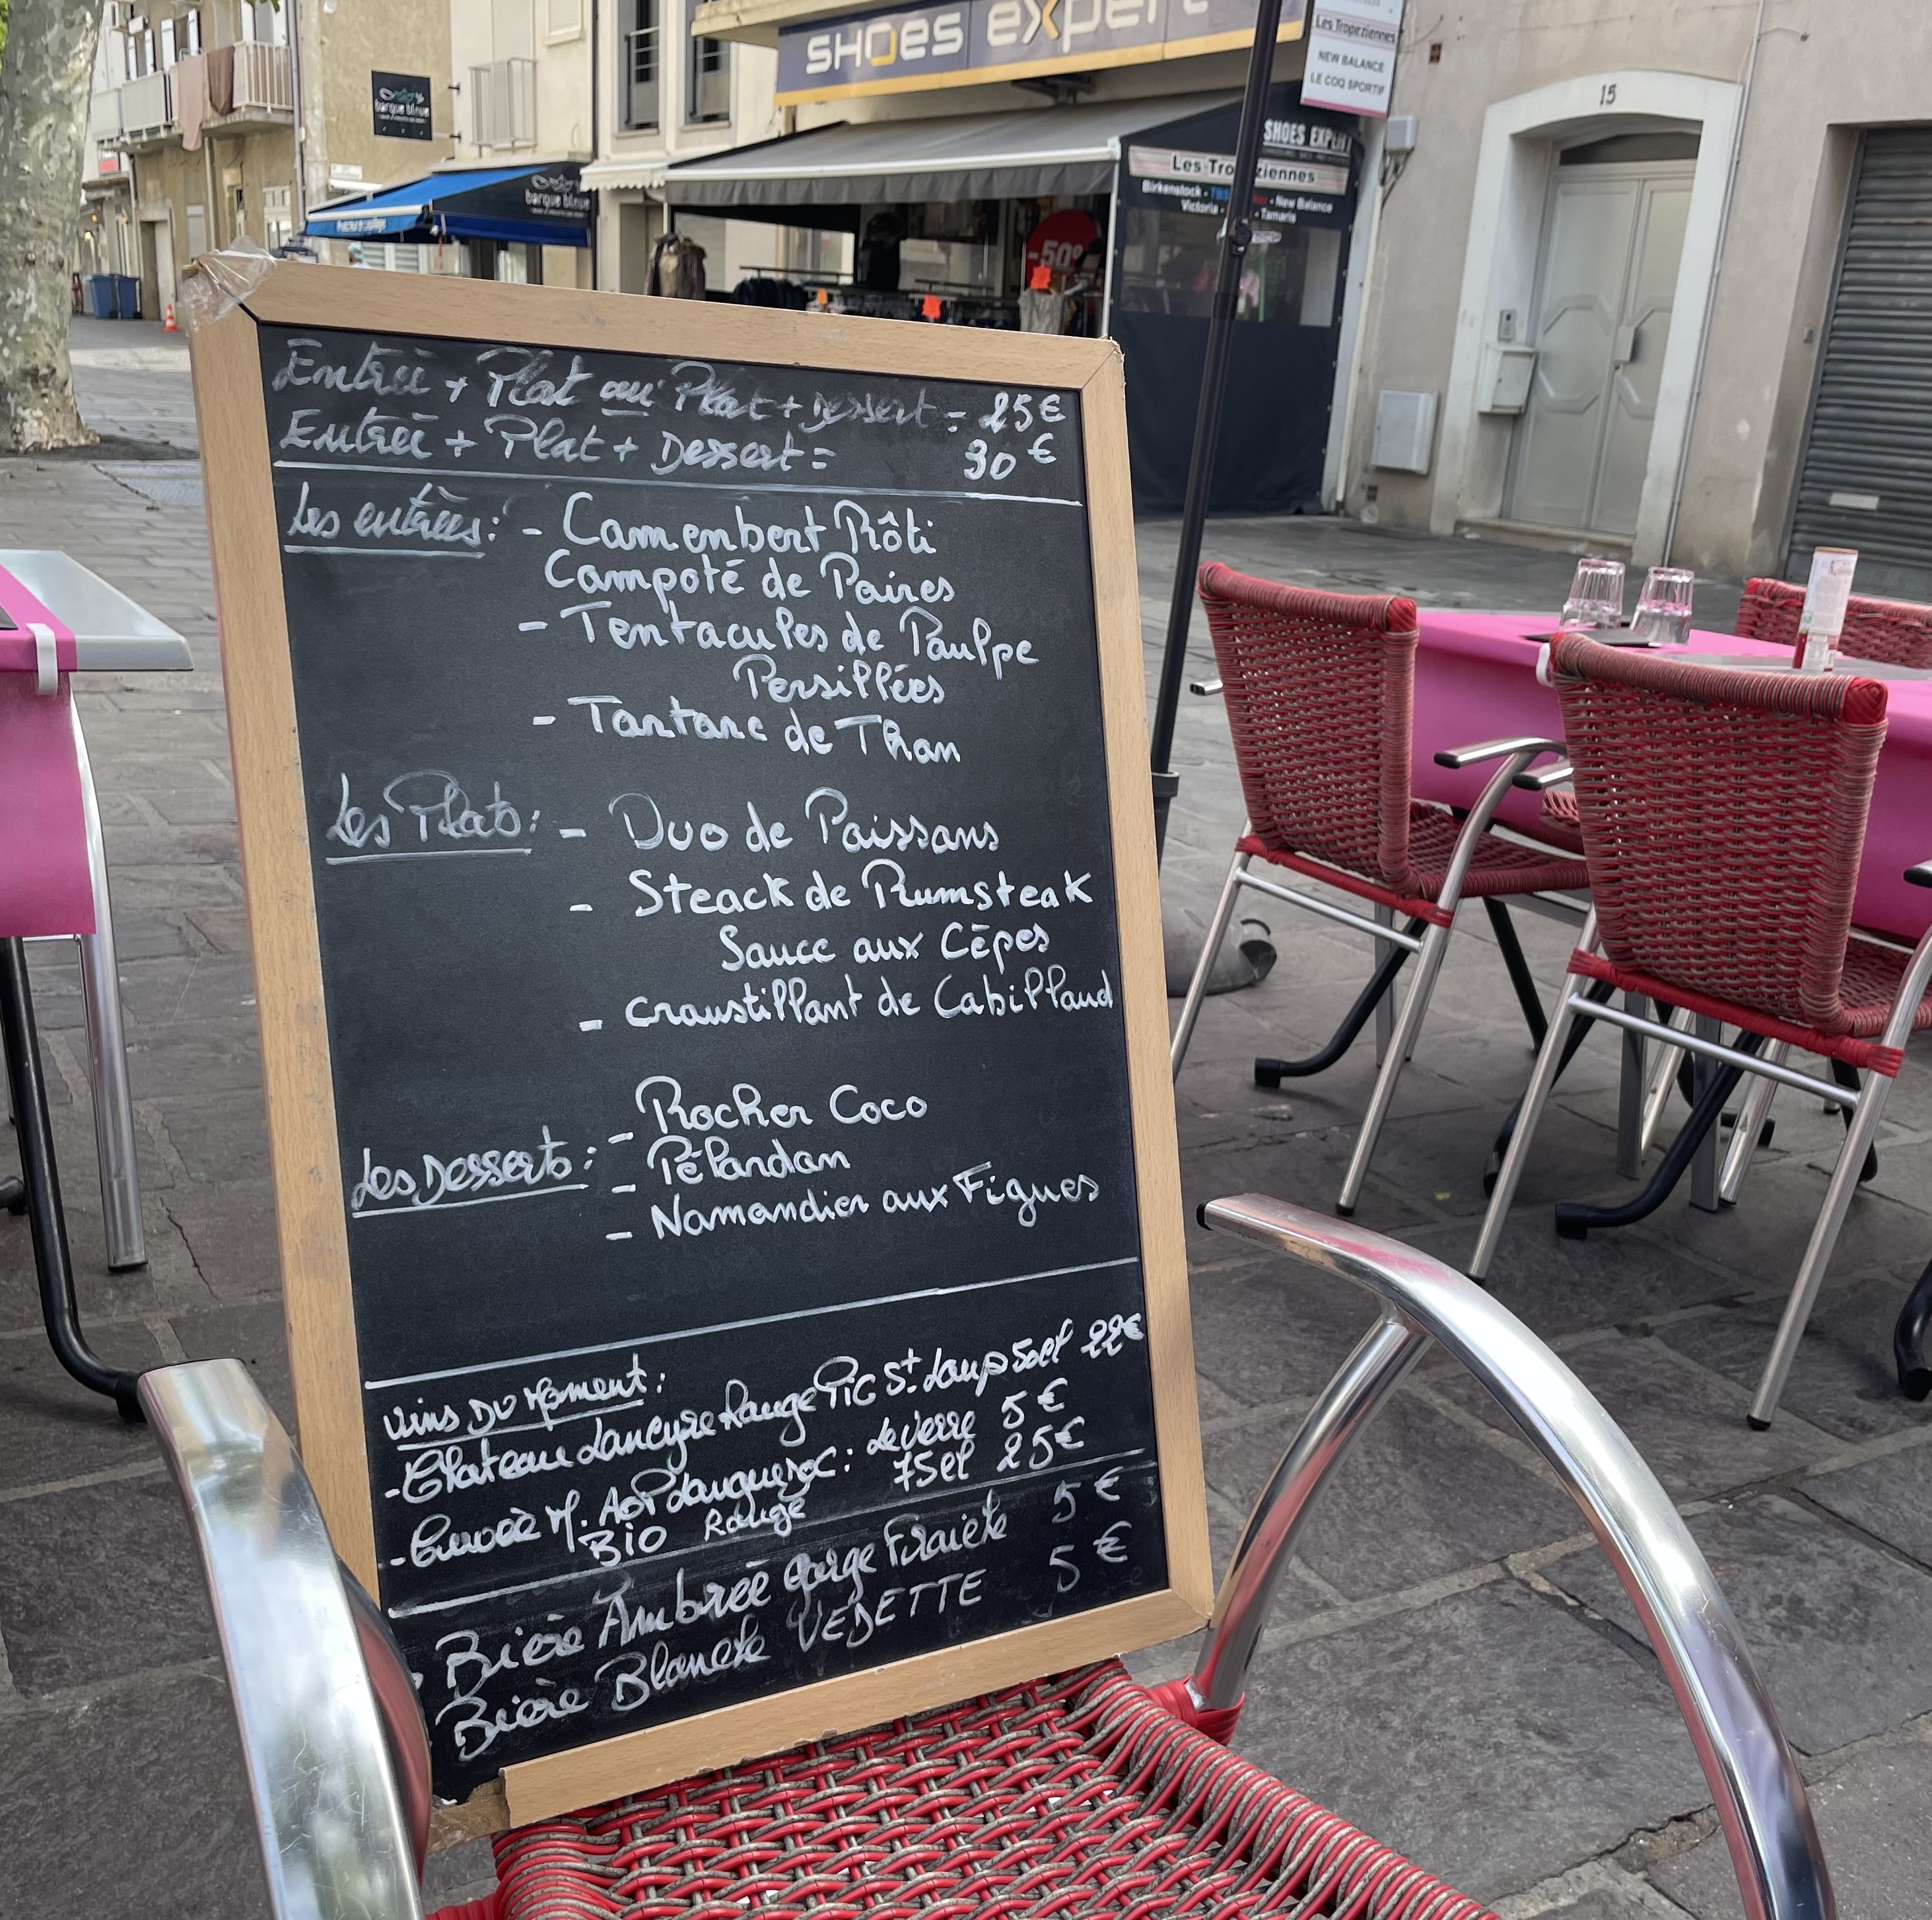 SHOes expert
Les Tropéziennes
NEW BALANCE
LE COQ SPORTIF
15
barque bleue
SHOES EXPERT
Les Tropéziennes
Birkenstock - - New Balance
Victoria - - Tamaris
barque bleue
-50%
Entrée + Plat ou Plat + Dessert = 25€
Entrée + Plat + Dessert = 30€
Les entrées: - Camembert Rôti
Compoté de Poires
- Tentacules de Poulpe
Persillées
- Tartare de Thon
Les Plats: - Duo de Poissons
- Steack de Rumsteak
Sauce aux Cèpes
- croustillant de Cabillaud
- Rocher Coco
Les Desserts: - Pélardon
- Namandier aux Figues
Vins Du Moment:
- Chateau Lancyre Rouge Pic St Loup 50cl 22€
- Cuvée M. AOP Languedoc: Le Verre 5€
BIO Rouge 75cl 25€
Bière Ambrée Gorge Fraiche 5€
Bière Blanche VEDETTE 5€